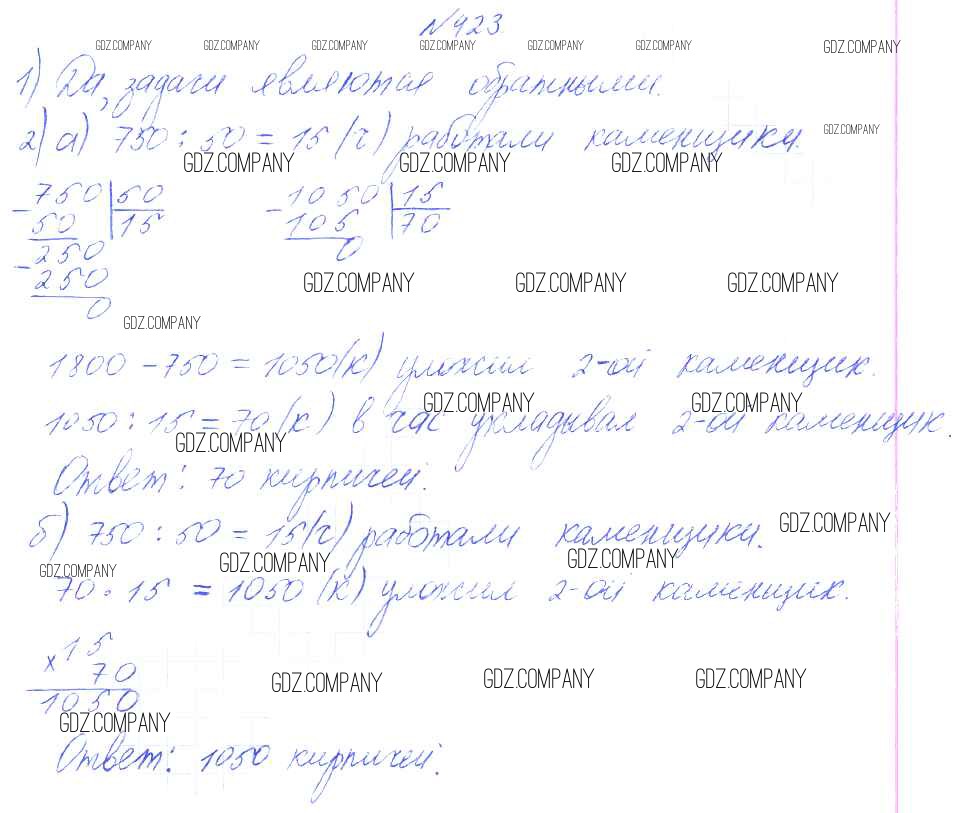 №423
GDZ.COMPANY GDZ.COMPANY GDZ.COMPANY GDZ.COMPANY GDZ.COMPANY GDZ.COMPANY GDZ.COMPANY
1) Да, задачи являются обратными.
2) а) 750 : 50 = 15 (ч) работали каменщики.
GDZ.COMPANY
GDZ.COMPANY GDZ.COMPANY GDZ.COMPANY
- 750 | 50 - 1050 | 15
50 | 15 105 | 70
250 0
- 250
GDZ.COMPANY GDZ.COMPANY GDZ.COMPANY
0
GDZ.COMPANY
1800 - 750 = 1050 (к) уложил 2-ой каменщик.
GDZ.COMPANY GDZ.COMPANY
1050 : 15 = 70 (к) в час укладывал 2-ой каменщик.
GDZ.COMPANY
Ответ: 70 кирпичей.
б) 750 : 50 = 15 (ч) работали каменщики.
GDZ.COMPANY
GDZ.COMPANY GDZ.COMPANY GDZ.COMPANY
70 · 15 = 1050 (к) уложил 2-ой каменщик.
x 15
70
GDZ.COMPANY GDZ.COMPANY GDZ.COMPANY
1050
GDZ.COMPANY
Ответ: 1050 кирпичей.